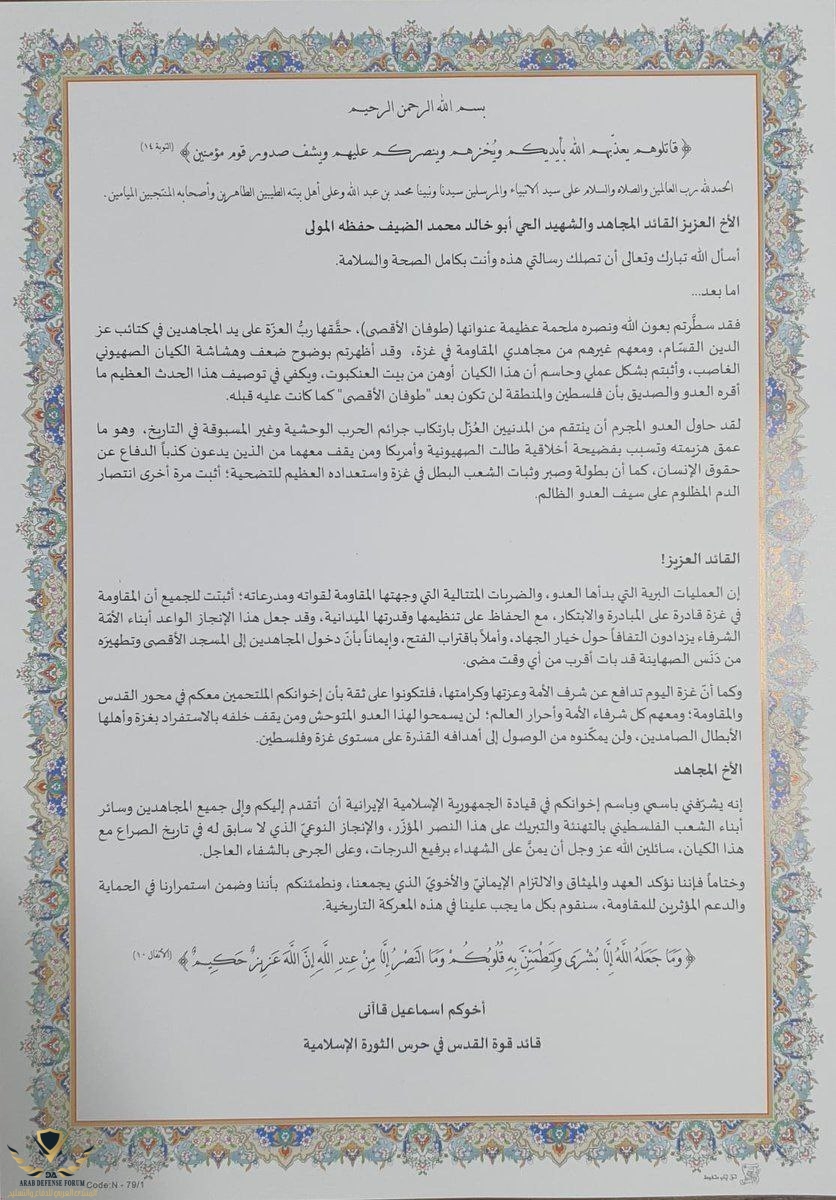 بسم الله الرحمن الرحيم
﴿ قاتلوهم يعذّبهم الله بأيديكم ويُخزهم وينصركم عليهم ويشف صدور قوم مؤمنين ﴾ (التوبة ١٤)
الحمدلله رب العالمين والصلاه والسلام على سيد الانبياء والمرسلين سيدنا ونبينا محمد بن عبد الله وعلى أهل بيته الطيبين الطاهرين وأصحابه المنتجبين الميامين.
الأخ العزيز القائد المجاهد والشهيد الحي أبو خالد محمد الضيف حفظه المولى
أسأل الله تبارك وتعالى أن تصلك رسالتي هذه وأنت بكامل الصحة والسلامة.
اما بعد...
فقد سطَّرتم بعون الله ونصره ملحمة عظيمة عنوانها (طوفان الأقصى)، حقَّقها ربُّ العزّة على يد المجاهدين في كتائب عز
الدين القسّام، ومعهم غيرهم من مجاهدي المقاومة في غزة، وقد أظهرتم بوضوح ضعف وهشاشة الكيان الصهيوني
الغاصب، وأثبتم بشكل عملي وحاسم أن هذا الكيان أوهن من بيت العنكبوت، ويكفي في توصيف هذا الحدث العظيم ما
أقره العدو والصديق بأن فلسطين والمنطقة لن تكون بعد "طوفان الأقصى" كما كانت عليه قبله.
لقد حاول العدو المجرم أن ينتقم من المدنيين العُزّل بارتكاب جرائم الحرب الوحشية وغير المسبوقة في التاريخ، وهو ما
عمق هزيمته وتسبب بفضيحة أخلاقية طالت الصهيونية وأمريكا ومن يقف معهما من الذين يدعون كذباً الدفاع عن
حقوق الإنسان، كما أن بطولة وصبر وثبات الشعب البطل في غزة واستعداده العظيم للتضحية؛ أثبت مرة أخرى انتصار
الدم المظلوم على سيف العدو الظالم.
القائد العزيز!
إن العمليات البرية التي بدأها العدو، والضربات المتتالية التي وجهتها المقاومة لقواته ومدرعاته؛ أثبتت للجميع أن المقاومة
في غزة قادرة على المبادرة والابتكار، مع الحفاظ على تنظيمها وقدرتها الميدانية، وقد جعل هذا الإنجاز الواعد أبناء الأمّة
الشرفاء يزدادون التفافاً حول خيار الجهاد، وأملاً باقتراب الفتح، وإيماناً بأنّ دخول المجاهدين إلى المسجد الأقصى وتطهيرَه
من دَنَس الصهاينة قد بات أقرب من أي وقت مضى.
وكما أنّ غزة اليوم تدافع عن شرف الأمة وعزتها وكرامتها، فلتكونوا على ثقة بأن إخوانكم الملتحمين معكم في محور القدس
والمقاومة؛ ومعهم كل شرفاء الأمة وأحرار العالم؛ لن يسمحوا لهذا العدو المتوحش ومن يقف خلفه بالاستفراد بغزة وأهلها
الأبطال الصامدين، ولن يمكّنوه من الوصول إلى أهدافه القذرة على مستوى غزة وفلسطين.
الأخ المجاهد
إنه يشرّفني باسمي وباسم إخوانكم في قيادة الجمهورية الإسلامية الإيرانية أن أتقدم إليكم وإلى جميع المجاهدين وسائر
أبناء الشعب الفلسطيني بالتهنئة والتبريك على هذا النصر المؤزّر، والإنجاز النوعيّ الذي لا سابق له في تاريخ الصراع مع
هذا الكيان، سائلين الله عز وجل أن يمنَّ على الشهداء برفيع الدرجات، وعلى الجرحى بالشفاء العاجل.
وختاماً فإننا نؤكد العهد والميثاق والالتزام الإيمانيّ والأخويّ الذي يجمعنا، ونطمئنكم بأننا وضمن استمرارنا في الحماية
والدعم المؤثرين للمقاومة، سنقوم بكل ما يجب علينا في هذه المعركة التاريخية.
﴿ وَمَا جَعَلَهُ اللَّهُ إِلَّا بُشْرَى وَلِتَطْمَئِنَّ بِهِ قُلُوبُكُمْ وَمَا النَّصْرُ إِلَّا مِنْ عِندِ اللَّهِ إِنَّ اللَّهَ عَزِيزٌ حَكِيمٌ ﴾ (الأنفال ١٠)
أخوكم اسماعيل قاآنى
قائد قوة القدس في حرس الثورة الإسلامية
ARAB DEFENSE FORUM
Code:N - 79/1